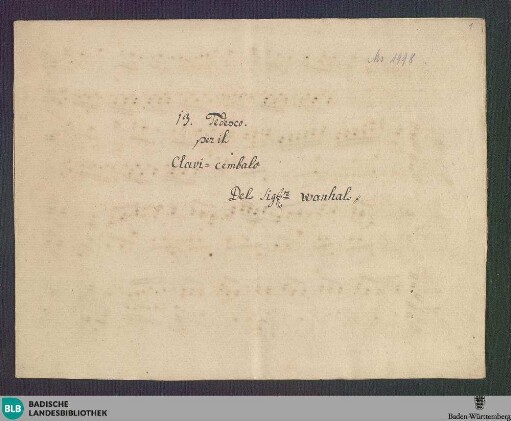 Ms 1998
13. Tedesco.
per il
Clavi= cembalo
Del Sigre wanhal
BLB BADISCHE
LANDESBIBLIOTHEK
Baden-Württemberg